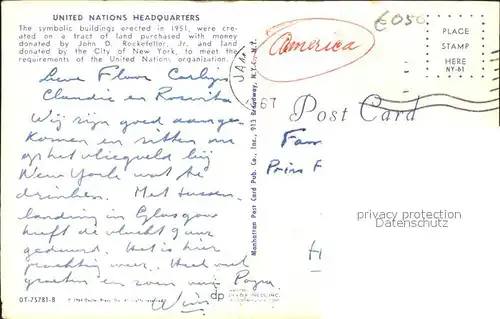 UNITED NATIONS HEADQUARTERS
The symbolic buildings erected in 1951, were cre-
ated on a tract of land purchased with money
donated by John D. Rockefeller, Jr. and land
donated by the City of New York, to meet the
requirements of the United Nations organization.
America
PLACE
STAMP
HERE
NY-61
JAN
67
Post Card
Lieve Fleur Carlijn
Claudie en Roswita
Wij zijn goed aange-
komen en zitten nu
op het vliegveld bij
New York wat te
drinken. Met tussen-
landing in Glasgow
heeft de vlucht 9 uur
geduurd. Het is hier
prachtig weer. Heel veel
groeten en zoen van Papa
Wim
Fam
Prins F
H
privacy protection
Datenschutz
Manhattan Post Card Pub. Co., Inc., 913 Broadway, N.Y.C., N.Y.
DT-75781-B
dp